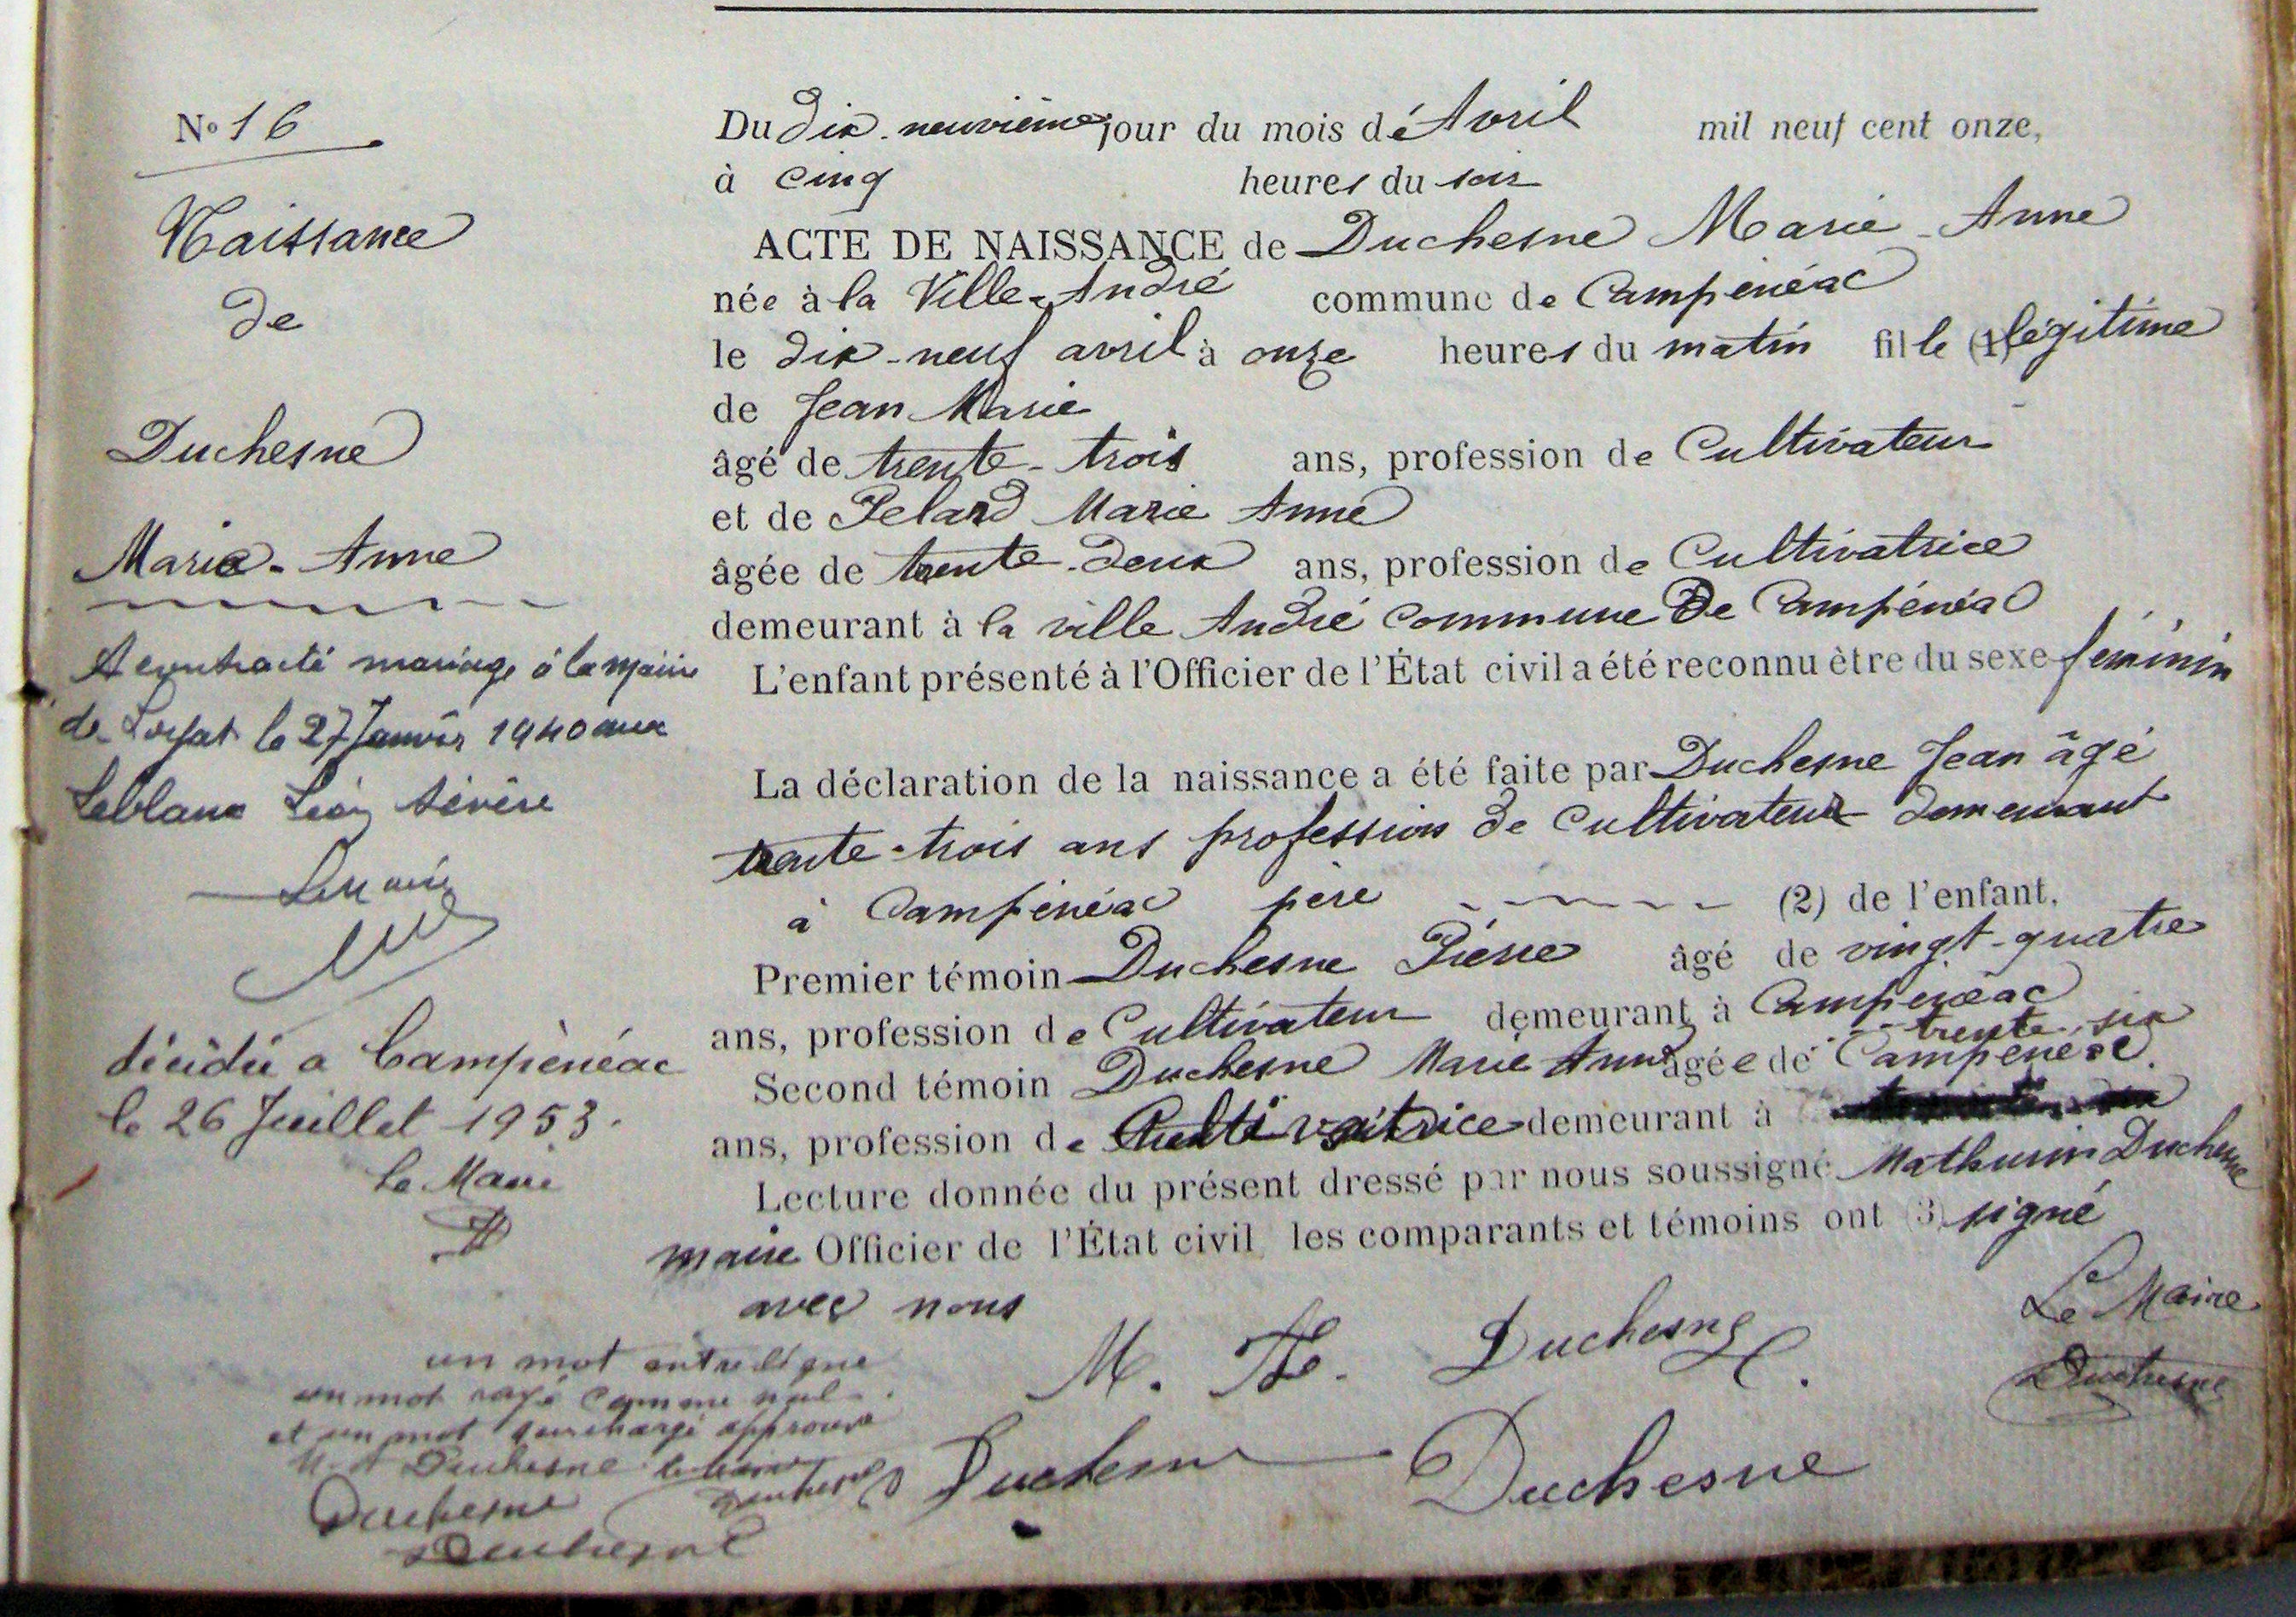 N° 16
Naissance
de
Duchesne
Marie-Anne
A contracté mariage à la mairie
de Loyat le 27 Janvier 1940 avec
Leblanc Léon Sévère
Le Maire
décédée a Campénéac
le 26 Juillet 1953.
le Maire
un mot entreligne
un mot rayé comme nul.
et un mot surchargé approuvé
M. A Duchesne le maire
Duchesne Duchesne
Duchesne
Du dix-neuvième jour du mois de Avril mil neuf cent onze,
à cinq heures du soir
ACTE DE NAISSANCE de Duchesne Marie-Anne
née à la Ville-André commune de Campénéac
le dix-neuf avril à onze heures du matin fille (1) légitime
de Jean Marie
âgé de trente-trois ans, profession de Cultivateur
et de Pelard Marie Anne
âgée de trente-deux ans, profession de Cultivatrice
demeurant à la ville André commune De Campénéac
L'enfant présenté à l'Officier de l'État civil a été reconnu être du sexe féminin
La déclaration de la naissance a été faite par Duchesne Jean âgé
trente-trois ans profession de Cultivateur demeurant
à Campénéac père (2) de l'enfant.
Premier témoin Duchesne Pierre âgé de vingt-quatre
ans, profession de Cultivateur demeurant à Campénéac
trente-six
Second témoin Duchesne Marie Anne âgée de Campénéac.
ans, profession de Cultivatrice demeurant à
Lecture donnée du présent dressé par nous soussigné Mathurin Duchesne
maire Officier de l'État civil les comparants et témoins ont (3) signé
avec nous
Le Maire
M. A. Duchesne
Duchesne
Duchesne Duchesne